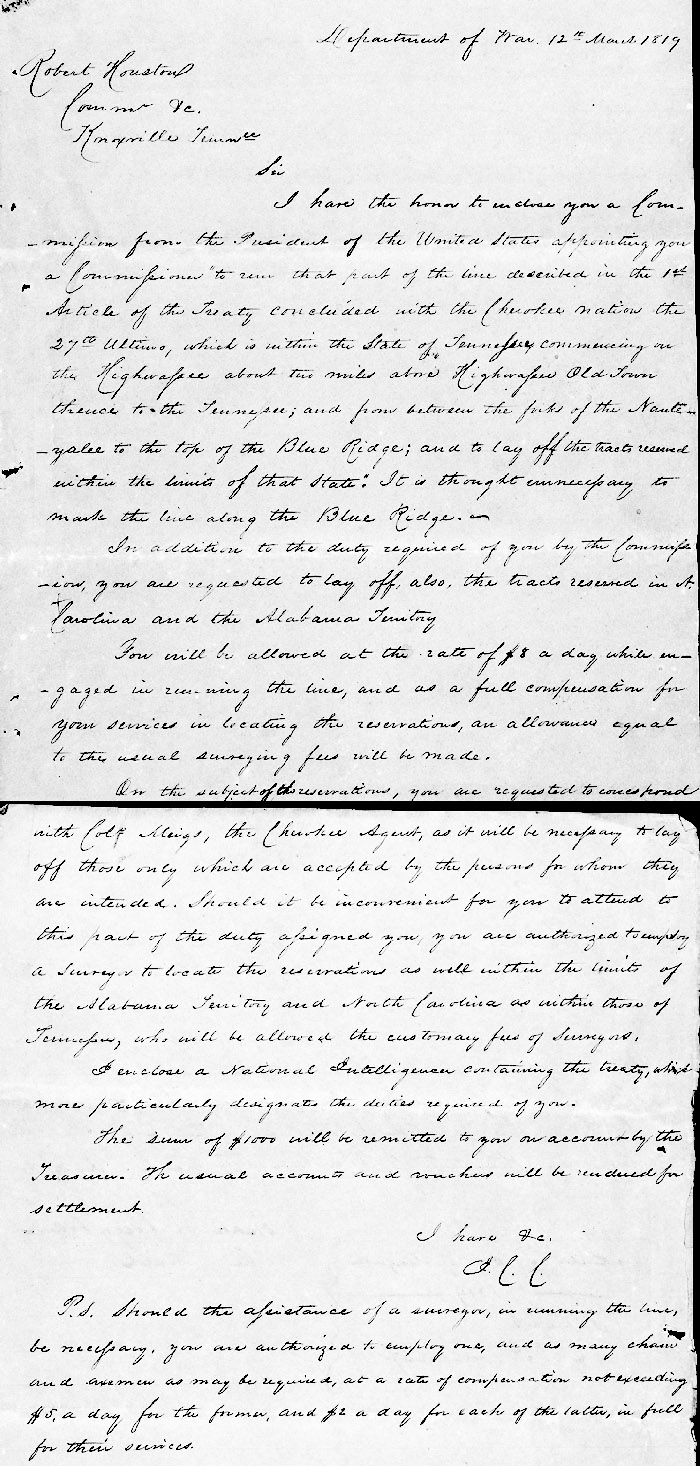 Department of War. 12th March 1819
Robert Houston
Commr &c.
Knoxville Tennee
Sir
I have the honor to enclose you a Com-
-mission from the President of the United States appointing you
a Commissioner "to run that part of the line described in the 1st
Article of the Treaty concluded with the Cherokee nation the
27th Ultimo, which is within the State of Tennessee, commencing on
the Highwassee about two miles above Highwassee Old Town
thence to the Tennessee; and from between the forks of the Nante-
-yalee to the top of the Blue Ridge; and to lay off the tracts reserved
within the limits of that State". It is thought unnecessary to
mark the line along the Blue Ridge.
In addition to the duty required of you by the Commiss-
-ion, you are requested to lay off, also, the tracts reserved in N.
Carolina and the Alabama Territory
You will be allowed at the rate of $8 a day while en-
-gaged in running the line, and as a full compensation for
your services in locating the reservations, an allowance equal
to the usual surveying fees will be made.
On the subject of the reservations, you are requested to correspond
with Colo. Meigs, the Cherokee Agent, as it will be necessary to lay
off those only which are accepted by the persons for whom they
are intended. Should it be inconvenient for you to attend to
this part of the duty assigned you, you are authorized to employ
a Surveyor to locate the reservations as well within the limits of
the Alabama Territory and North Carolina as within those of
Tennessee, who will be allowed the customary fees of Surveyors.
I enclose a National Intelligencer containing the treaty, which
more particularly designates the duties required of you.
The sum of $1000 will be remitted to you on account by the
Treasurer. The usual accounts and vouchers will be rendered for
settlement.
I have &c.
J. C. C.
P.S. Should the assistance of a surveyor, in running the line,
be necessary, you are authorized to employ one, and as many chain
and axemen as may be required, at a rate of compensation not exceeding
$5, a day for the former, and $2 a day for each of the latter, in full
for their services.